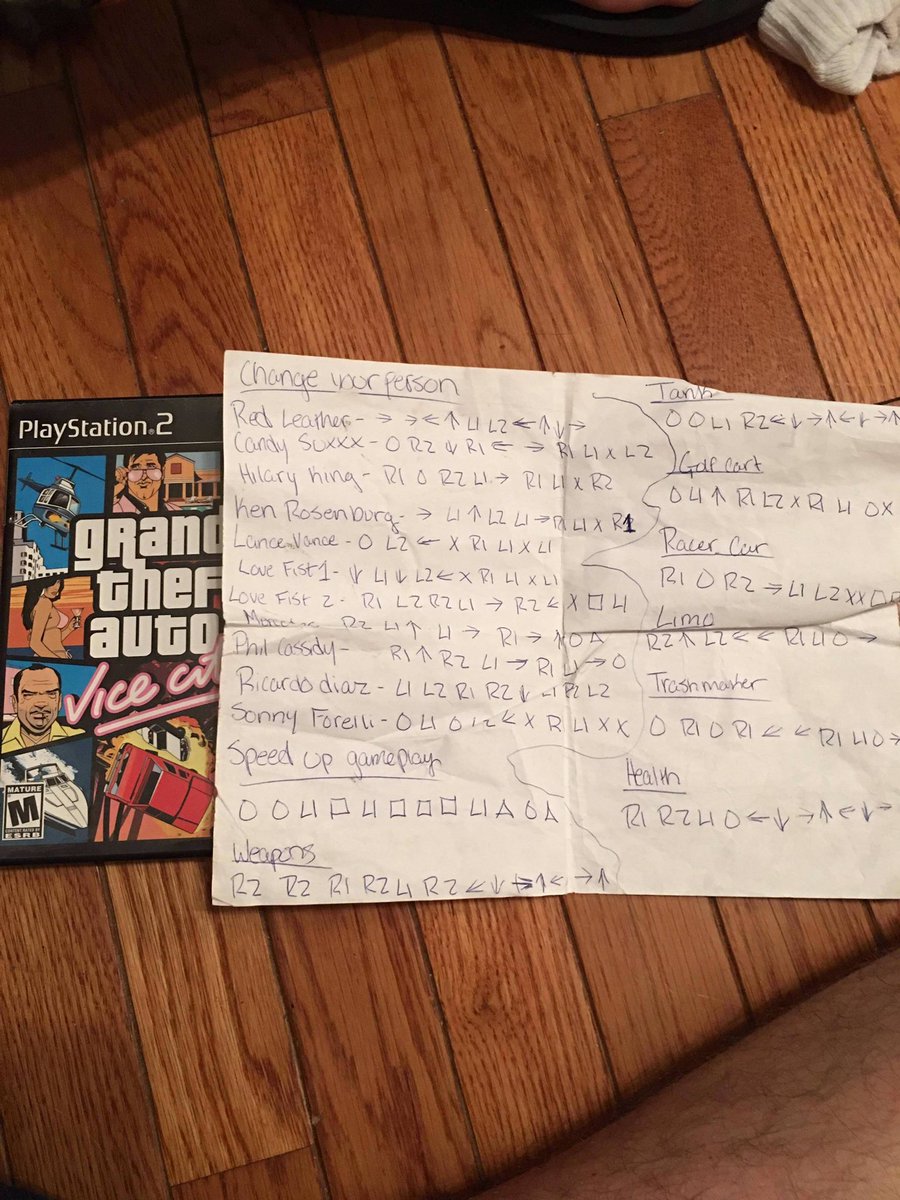 PlayStation®2
grand
theft
auto
Vice Cit
MATURE
M
CONTENT RATED BY
ESRB
Change your person
Red Leather - → → ← ↑ L1 L2 ← ↑ ↓ →
Candy Suxxx - O R2 ↓ R1 ← → R1 L1 X L2
Hilary King - R1 O R2 L1 → R1 L1 X R2
Ken Rosenburg - → L1 ↑ L2 L1 → R1 L1 X R1
Lance Vance - O L2 ← X R1 L1 X L1
Love Fist 1 - ↓ L1 ↓ L2 ← X R1 L1 X L1
Love Fist 2 - R1 L2 R2 L1 → R2 ← X □ L1
R2 L1 ↑ L1 → R1 → ↑ O △
Phil Cassidy - R1 ↑ R2 L1 → R1 L1 → O
Ricardo diaz - L1 L2 R1 R2 ↓ L1 R2 L2
Sonny Forelli - O L1 O L2 ← X R1 L1 X X
Speed up gameplay
O O L1 □ L1 □ □ □ L1 △ O △
Weapons
R2 R2 R1 R2 L1 R2 ← ↓ → ↑ ← → ↑
Tank
O O L1 R2 ← ↓ → ↑ ← ↓ → ↑
Golf cart
O L1 ↑ R1 L2 X R1 L1 O X
Racer Car
R1 O R2 → L1 L2 X X □ □
Limo
R2 ↑ L2 ← ← R1 L1 O →
Trashmaster
O R1 O R1 ← ← R1 L1 O →
Health
R1 R2 L1 O ← ↓ → ↑ ← ↓ →